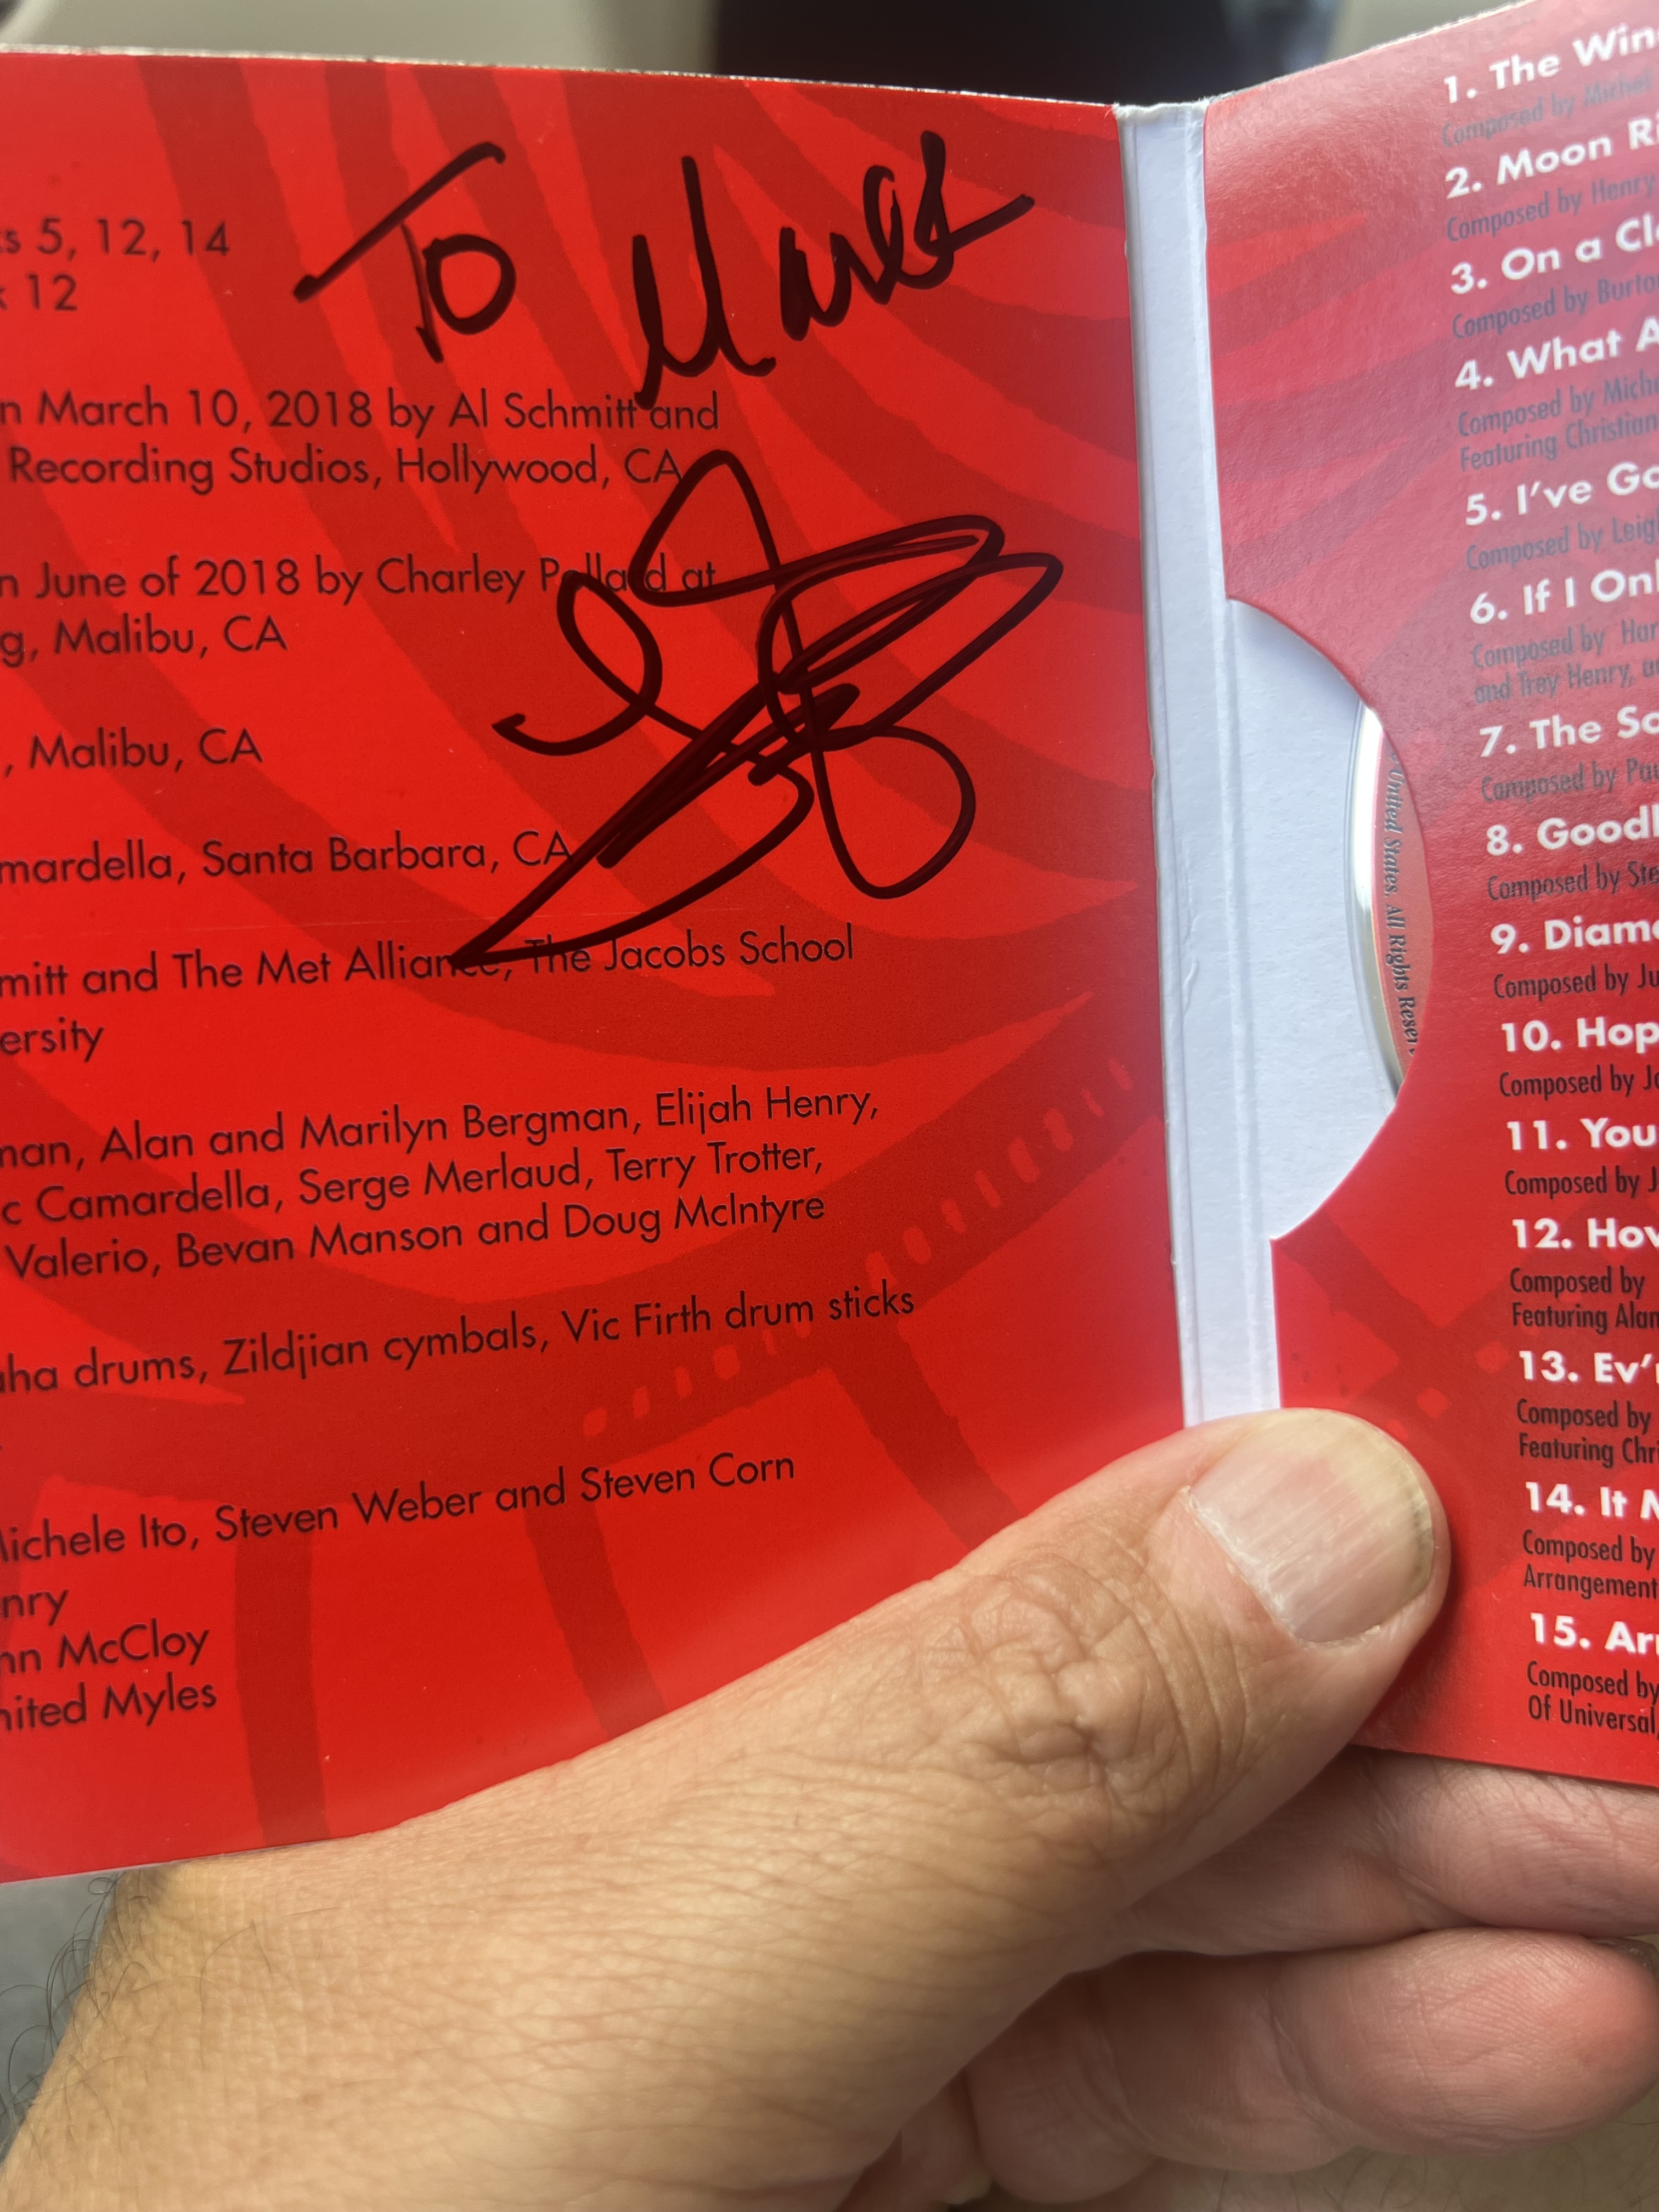 To
s 5, 12, 14
12
n March 10, 2018 by Al Schmitt and
Recording Studios, Hollywood, CA
n June of 2018 by Charley Pollard at
g, Malibu, CA
, Malibu, CA
mardella, Santa Barbara, CA
mitt and The Met Alliance, The Jacobs School
ersity
man, Alan and Marilyn Bergman, Elijah Henry,
c Camardella, Serge Merlaud, Terry Trotter,
Valerio, Bevan Manson and Doug McIntyre
aha drums, Zildjian cymbals, Vic Firth drum sticks
Michele Ito, Steven Weber and Steven Corn
nry
nn McCloy
nited Myles
1. The Win
Composed by Michel
2. Moon Ri
Composed by Henry
3. On a Cl
Composed by Burto
4. What A
Composed by Miche
Featuring Christian
5. I've Go
Composed by Leig
6. If I Onl
Composed by Har
and Trey Henry, a
7. The So
Composed by Pau
8. Goodb
Composed by Ste
9. Diam
Composed by Ju
10. Hop
Composed by Jo
11. You
Composed by J
12. How
Composed by
Featuring Alan
13. Ev'r
Composed by
Featuring Chri
14. It M
Composed by
Arrangement
15. Arr
Composed by
Of Universal
United States. All Rights Reser